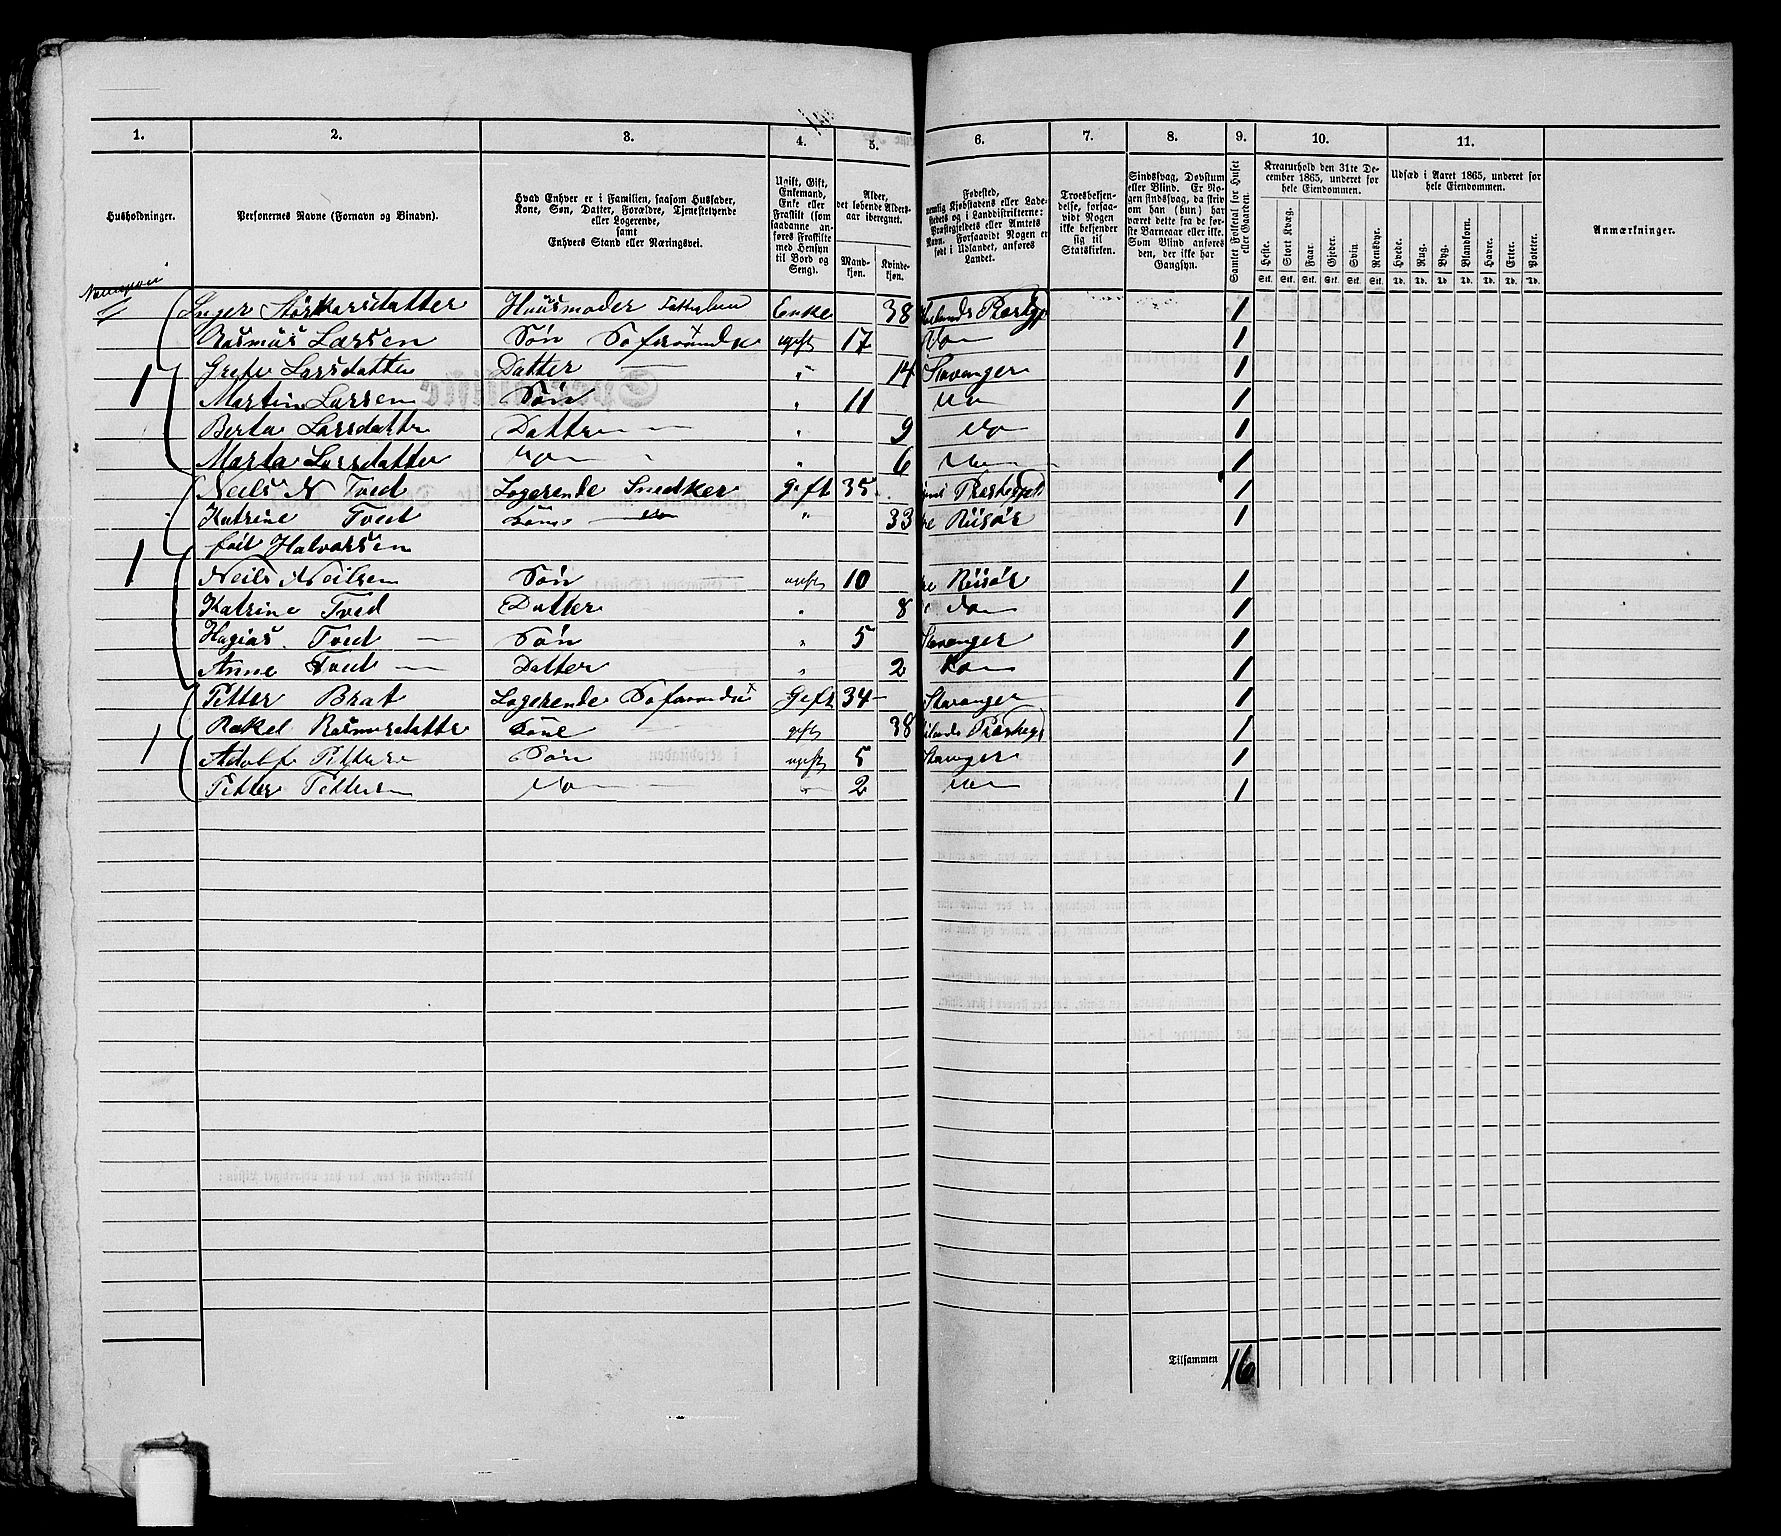 1. 2. 3. 4. 5. 6. 7. 8. 9. 10. 11.
Husholdninger.
Personernes Navne (Fornavn og Binavn).
Hvad Enhver er i Familien, saasom Husfader,
Kone, Søn, Datter, Forældre, Tjenestetyende
eller Logerende,
samt
Enhvers Stand eller Næringsvei.
Ugift, Gift,
Enkemand,
Enke eller
Fraskilt (som
saadanne an-
føres Fraskilte
med Hensyn
til Bord og
Seng).
Alder,
det løbende Alders-
aar iberegnet.
Mand-
kjøn.
Kvinde-
kjøn.
Fødested,
nemlig Kjøbstadens eller Lade-
stedets og i Landdistrikterne:
Præstegjeldets eller Amtets
Navn. Forsaavidt Nogen er
født i Udlandet, anføres
Landet.
Troesbekjen-
delse, forsaa-
vidt Nogen
ikke bekjender
sig til
Statskirken.
Sindssvag, Døvstum
eller Blind. Er No-
gen sindssvag, da skriv
om han (hun) har
været dette fra de før-
ste Barneaar eller ikke.
Som Blind anføres
den, der ikke har
Gangsyn.
Samlet Folketal for Huset
eller Gaarden.
Kreaturhold den 31te De-
cember 1865, underet for
hele Eiendommen.
Heste. Stort Kvæg. Faar. Gjeder. Svin. Rensdyr.
Stk. Stk. Stk. Stk. Stk. Stk.
Udsæd i Aaret 1865, underet for
hele Eiendommen.
Hvede. Rug. Byg. Blandkorn. Havre. Erter. Poteter.
Td. Td. Td. Td. Td. Td. Td.
Anmærkninger.
Inger Huusmoder Enke 38 1
Rasmus Larsen Søn ugift 17 Do 1
1 Grete Larsdatter Datter " 14 Stavanger 1
Martin Larsen Søn " 11 Do 1
Berta Larsdatter Datter " 9 Do 1
Marta Larsdatter Do " 6 Do 1
Neils N Tved Logerende Snedker Gift 35 1
Katrine Tved Kone Do " 33 Riisør 1
født Halvorsen
1 Neils Neilsen Søn ugift 10 Riisør 1
Katrine Tved Datter " 8 do 1
Tved Søn " 5 Stavanger 1
Anne Tved Datter " 2 Do 1
Petter Brat Logerende Gift 34 Stavanger 1
Rakel Rasmusdatter Kone gift 38 1
1 Adolf Pettersen Søn ugift 5 Stavanger 1
Petter Pettersen Do 2 Do 1
Tilsammen 16